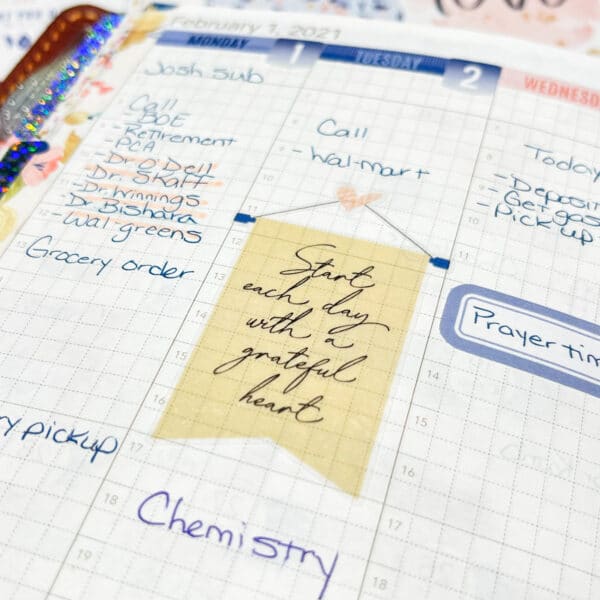 February 1, 2021
MONDAY 1
Josh sub
Call
- BOE
- Retirement
- PCA
- Dr O'Dell
- Dr. Skaff
- Dr. Winnings
- Dr Bishara
- Walgreens
Grocery order
pickup
TUESDAY 2
Call
- Wal-mart
Start
each day
with a
grateful
heart
Chemistry
WEDNESD
Today
- Deposit
- Get gas
- Pick up
Prayer tim
9
10
11
12
13
14
15
16
17
18
19